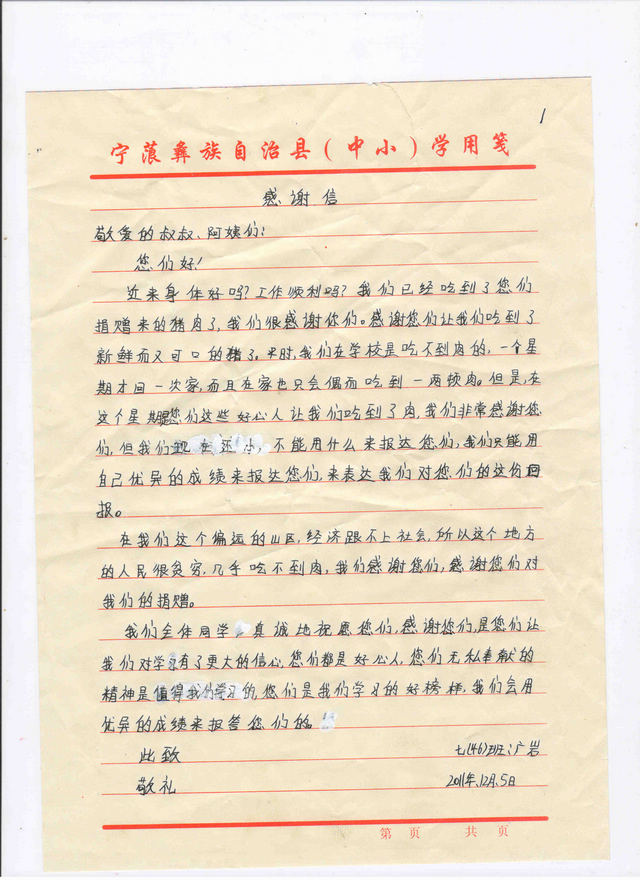 1
宁蒗彝族自治县(中小)学用笺
感谢信
敬爱的叔叔、阿姨们:
您们好!
近来身体好吗?工作顺利吗?我们已经吃到了您们
捐赠来的猪肉了,我们很感谢你们。感谢您们让我们吃到了
新鲜而又可口的猪了。平时,我们在学校是吃不到肉的,一个星
期才回一次家,而且在家也只会偶而吃到一两顿肉。但是,在
这个星期您们这些好心人让我们吃到了肉,我们非常感谢您
们,但我们现在还小,不能用什么来报达您们,我们只能用
自己优异的成绩来报达您们,来表达我们对您们的这份回
报。
在我们这个偏远的山区,经济跟不上社会,所以这个地方
的人民很贫穷,几乎吃不到肉,我们感谢您们,感谢您们对
我们的捐赠。
我们全体同学真诚地祝愿您们,感谢您们,是您们让
我们对学习有了更大的信心,您们都是好心人,您们无私奉献的
精神是值得我们学习的,您们是我们学习的好榜样,我们会用
优异的成绩来报答您们的。
此致 七(46)班:广岩
敬礼 2011年12月5日
第 页 共 页